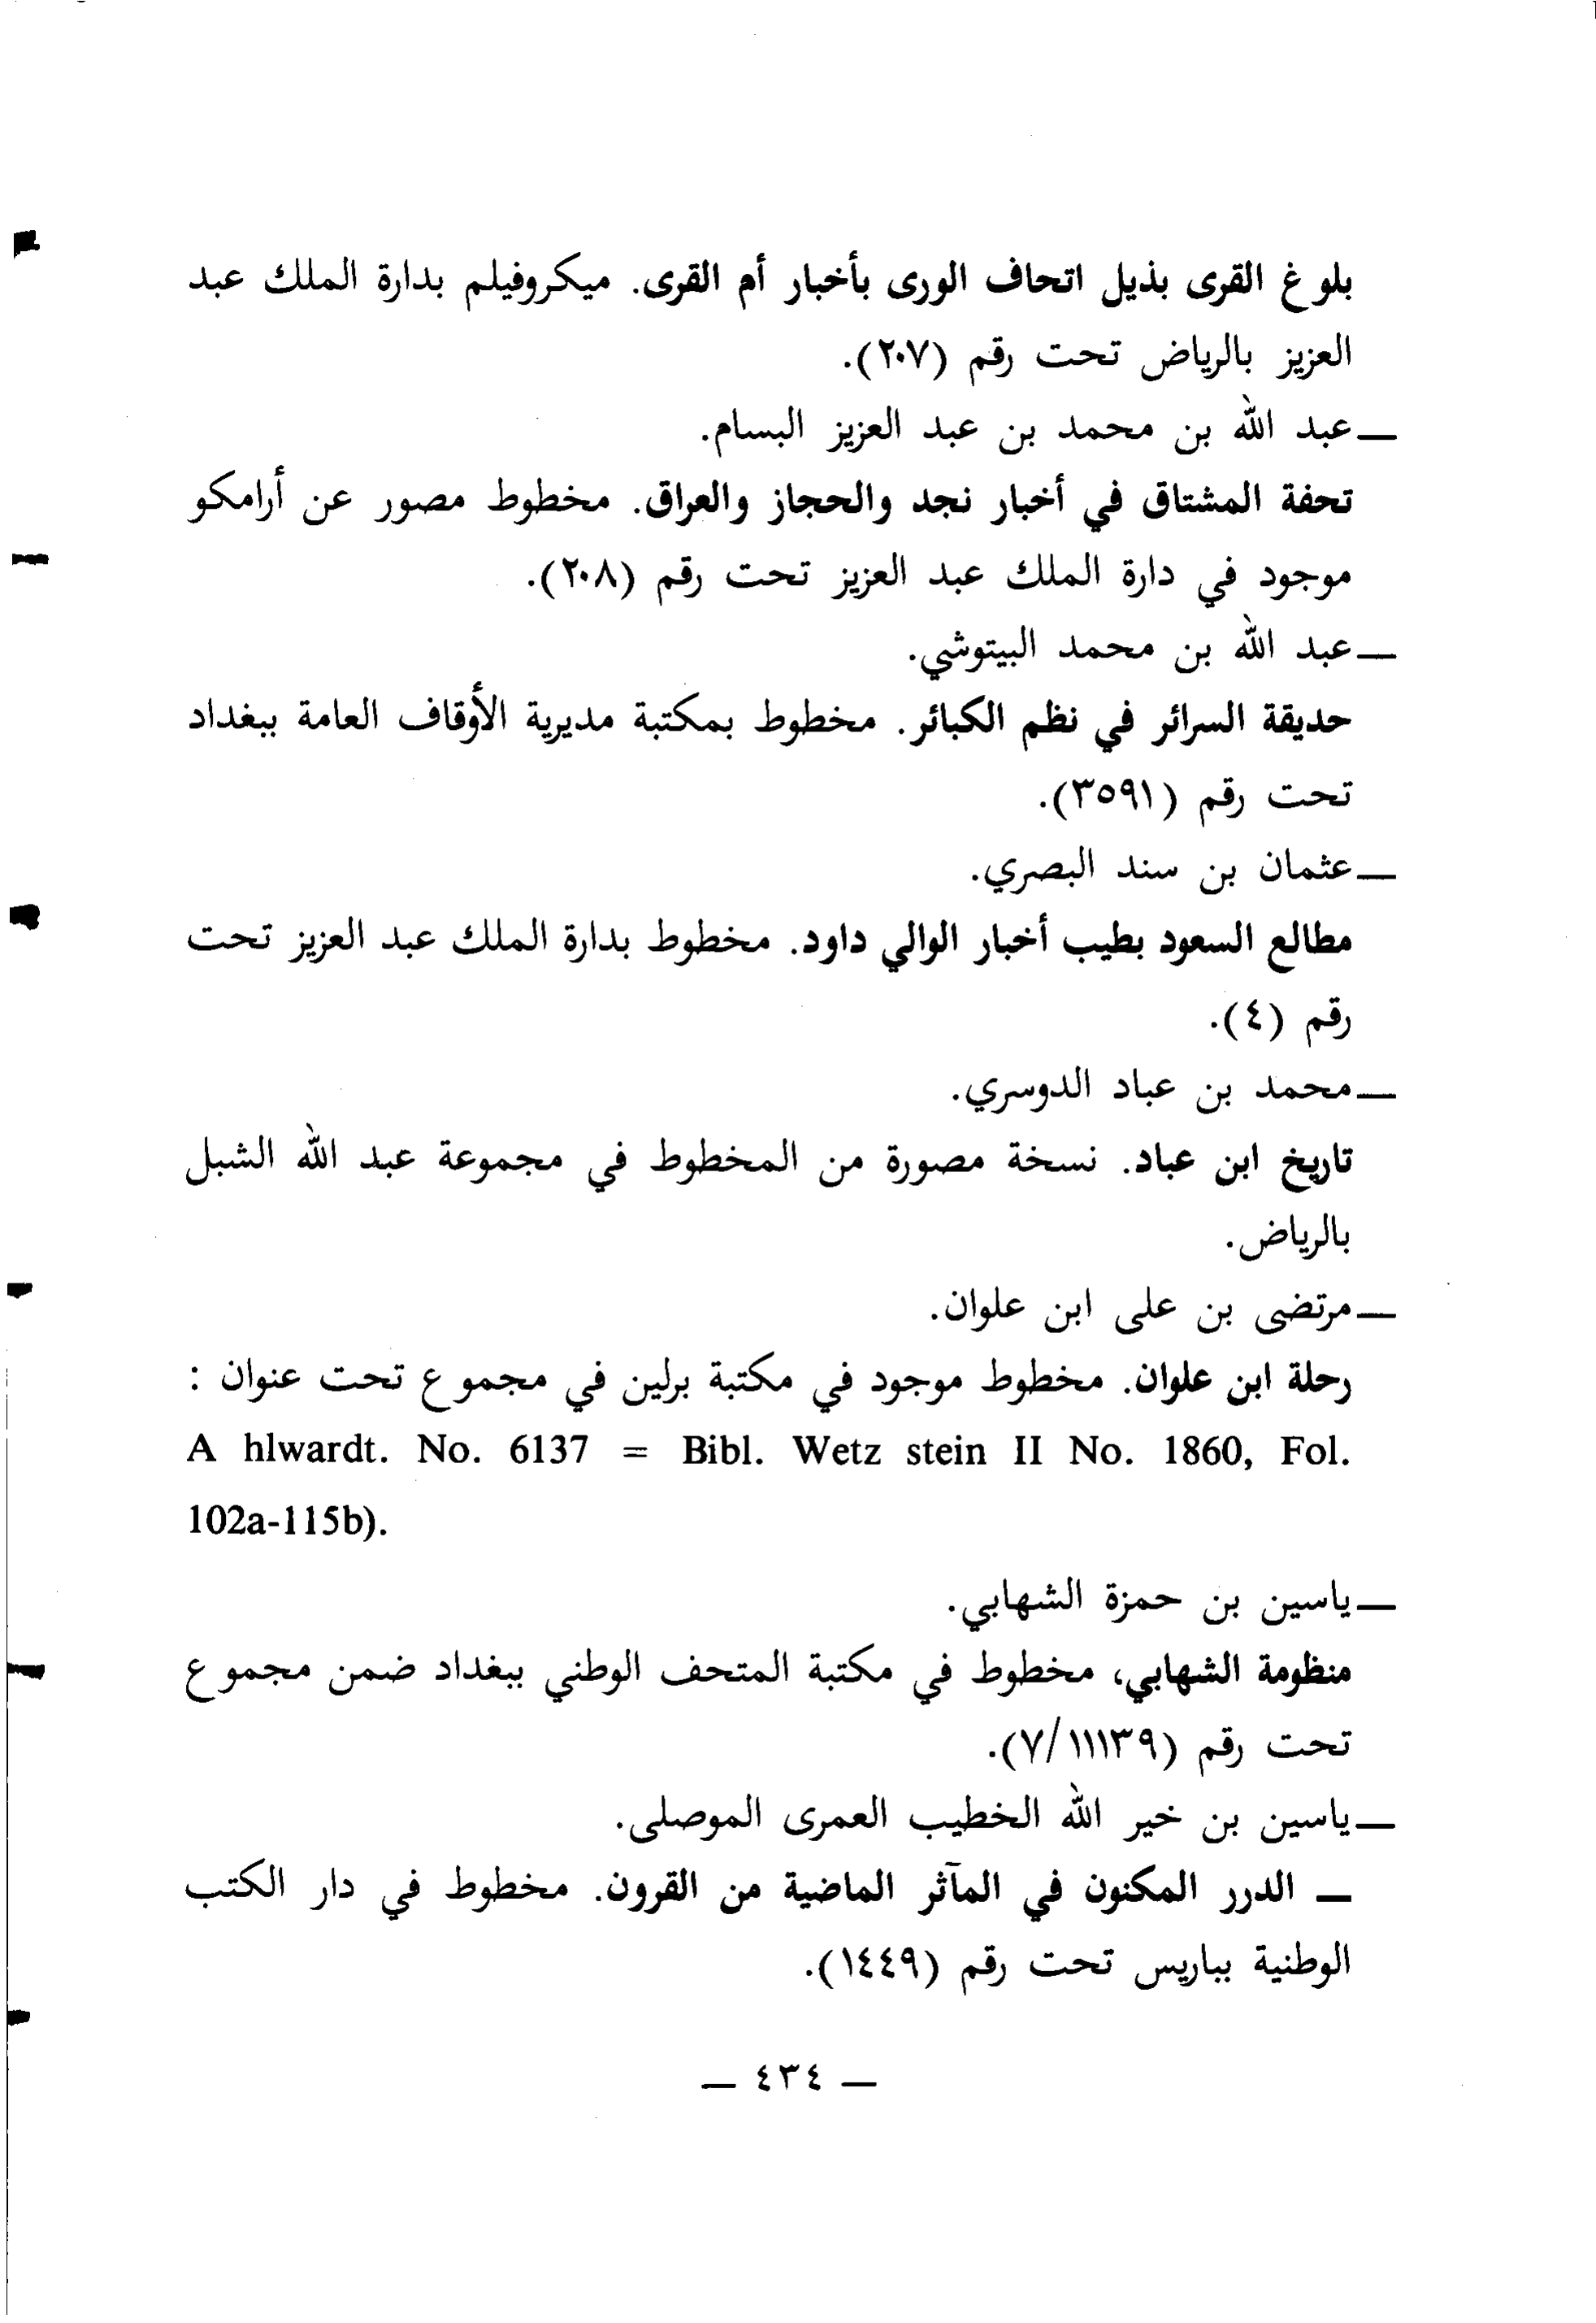 بلوغ القرى بذيل اتحاف الورى بأخبار أم القرى. ميكروفيلم بدارة الملك عبد
العزيز بالرياض تحت رقم (٢٠٧).
— عبد الله بن محمد بن عبد العزيز البسام.
تحفة المشتاق في أخبار نجد والحجاز والعراق. مخطوط مصور عن أرامكو
موجود في دارة الملك عبد العزيز تحت رقم (٢٠٨).
— عبد الله بن محمد البيتوشي.
حديقة السرائر في نظم الكبائر. مخطوط بمكتبة مديرية الأوقاف العامة ببغداد
تحت رقم (٣٥٩١).
— عثمان بن سند البصري.
مطالع السعود بطيب أخبار الوالي داود. مخطوط بدارة الملك عبد العزيز تحت
رقم (٤).
— محمد بن عباد الدوسري.
تاريخ ابن عباد. نسخة مصورة من المخطوط في مجموعة عبد الله الشبل
بالرياض.
— مرتضى بن على ابن علوان.
رحلة ابن علوان. مخطوط موجود في مكتبة برلين في مجموع تحت عنوان :
A hlwardt. No. 6137 = Bibl. Wetz stein II No. 1860, Fol.
102a-115b).
— ياسين بن حمزة الشهابي.
منظومة الشهابي، مخطوط في مكتبة المتحف الوطني ببغداد ضمن مجموع
تحت رقم (٧/١١١٣٩).
— ياسين بن خير الله الخطيب العمرى الموصلى.
— الدرر المكنون في المآثر الماضية من القرون. مخطوط في دار الكتب
الوطنية بباريس تحت رقم (١٤٤٩).
— ٤٣٤ —